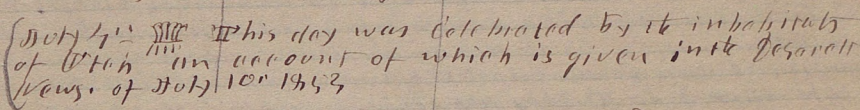 (July 4th This day was Celebrated by the inhabitants
of Utah an account of which is given in the Deserett
News. of July 10th 1852